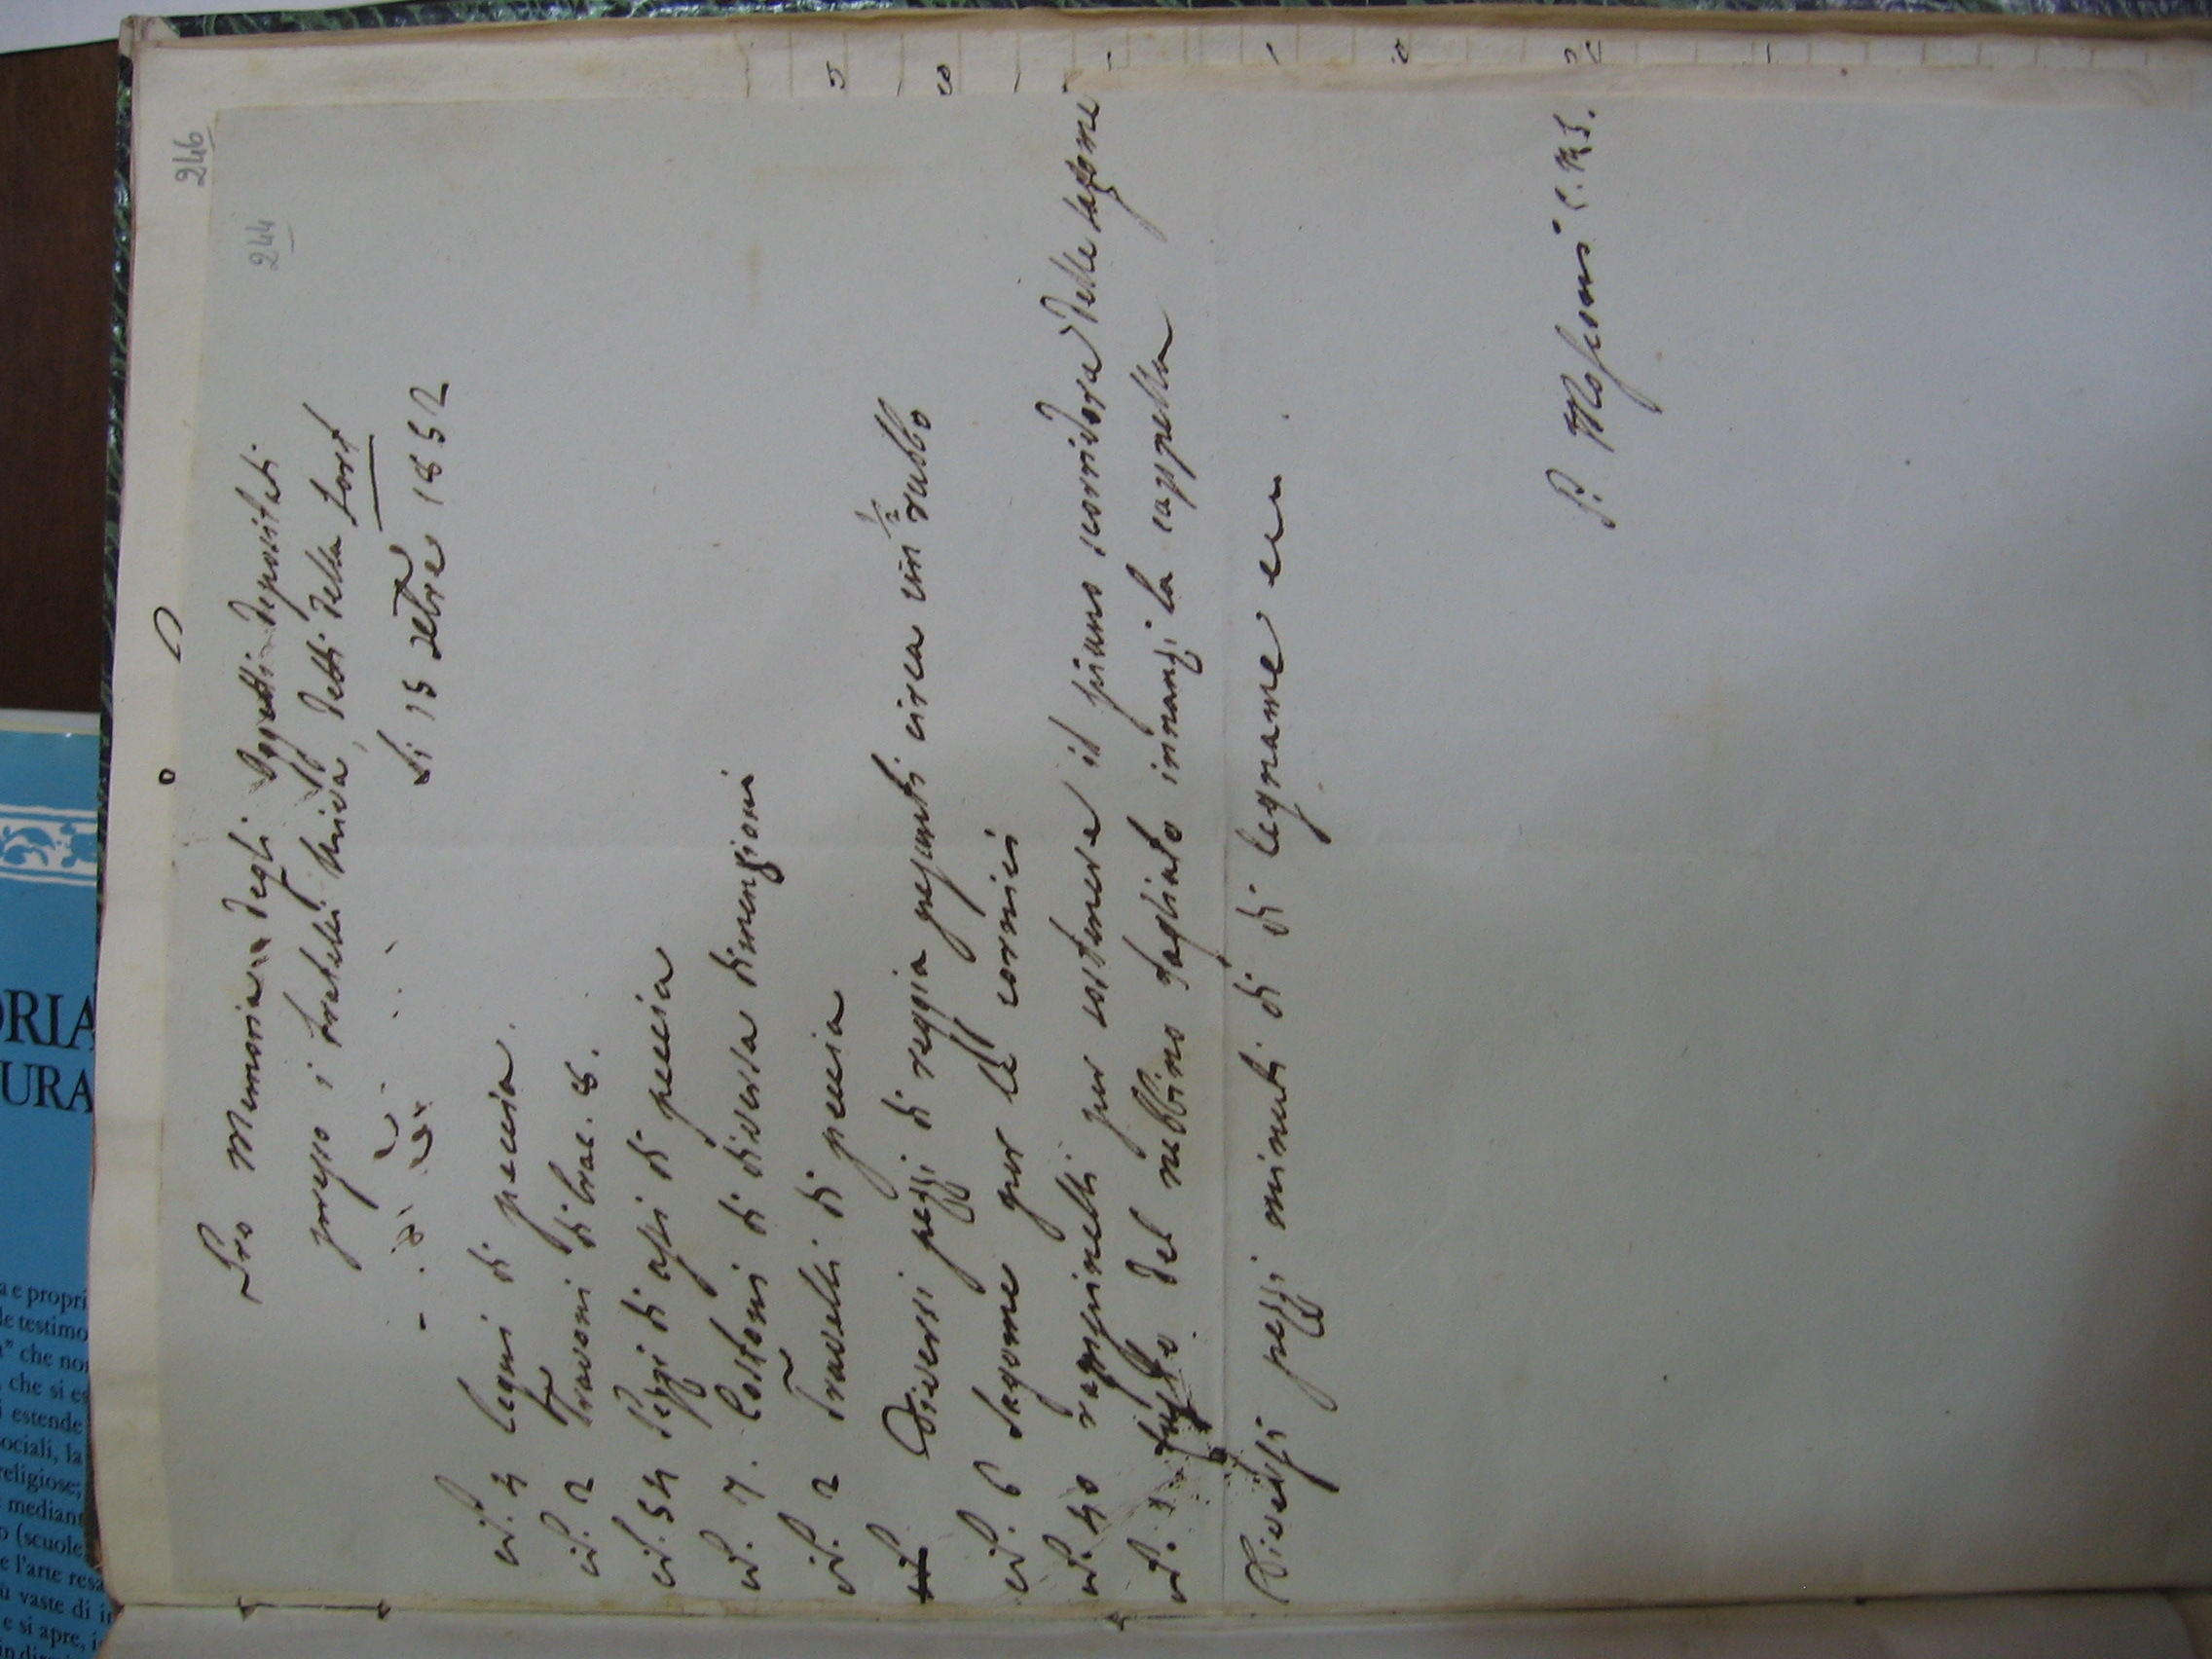 246
244
Pro Memoria degli Oggetti depositati
presso i fratelli Riva, detti della
Li 15 7bre 1852
N. 4 legni di peccia.
N. 2 Travoni di brac. 8.
N. 54 Pezzi di assi di peccia
N. 7. Costoni di diversa dimenzioni
N. 2 Travelli di peccia
Diversi pezzi di reggia pesanti circa un 1/2 rubbo
N. 6 sagome per le cornici
N. 40 rappinelli per sostenere il piano scorridora delle sagome
N. 1 fusto del nebbino tagliato innanzi la cappella
Diversi pezzi minuti di di legname
P. C.R.S.
ORIA
URA
a e propri
le testimo
" che no
che si es
estende
ociali, la
religiose;
mediant
o (scuole
e l'arte resa
ù vaste di i
e si apre, i